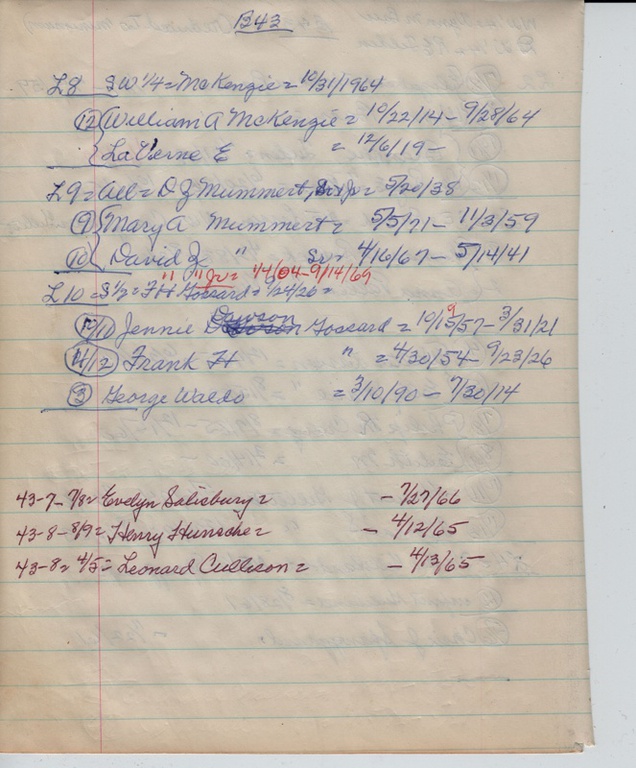 B43
L8 SW 1/4 = McKenzie = 10/31/1964
(12) { William A McKenzie = 10/22/14 - 9/28/64
{ LaVerne E = 12/6/19 -
L9 = All = D Z Mummert, = 5/20/38
(9) { Mary A Mummert = 5/5/71 - 11/3/59
(10) { David Z " Sr = 4/16/67 - 5/14/41
" " Jr = 1/4/04 - 9/14/69
L10 = S 1/2 = FH Gossard = 1/24/26 =
(10/11) Jennie Dawson Gossard = 10/19/57 - 3/31/21
(11/12) Frank H " = 4/30/54 - 9/23/26
(3) George Waldo = 3/10/90 - 7/30/14
43-7-7/8 = Evelyn Salisbury = - 7/27/66
43-8-8/9 = Henry Hunsche = - 4/12/65
43-8 = 4/5 = Leonard Cullison = - 4/13/65